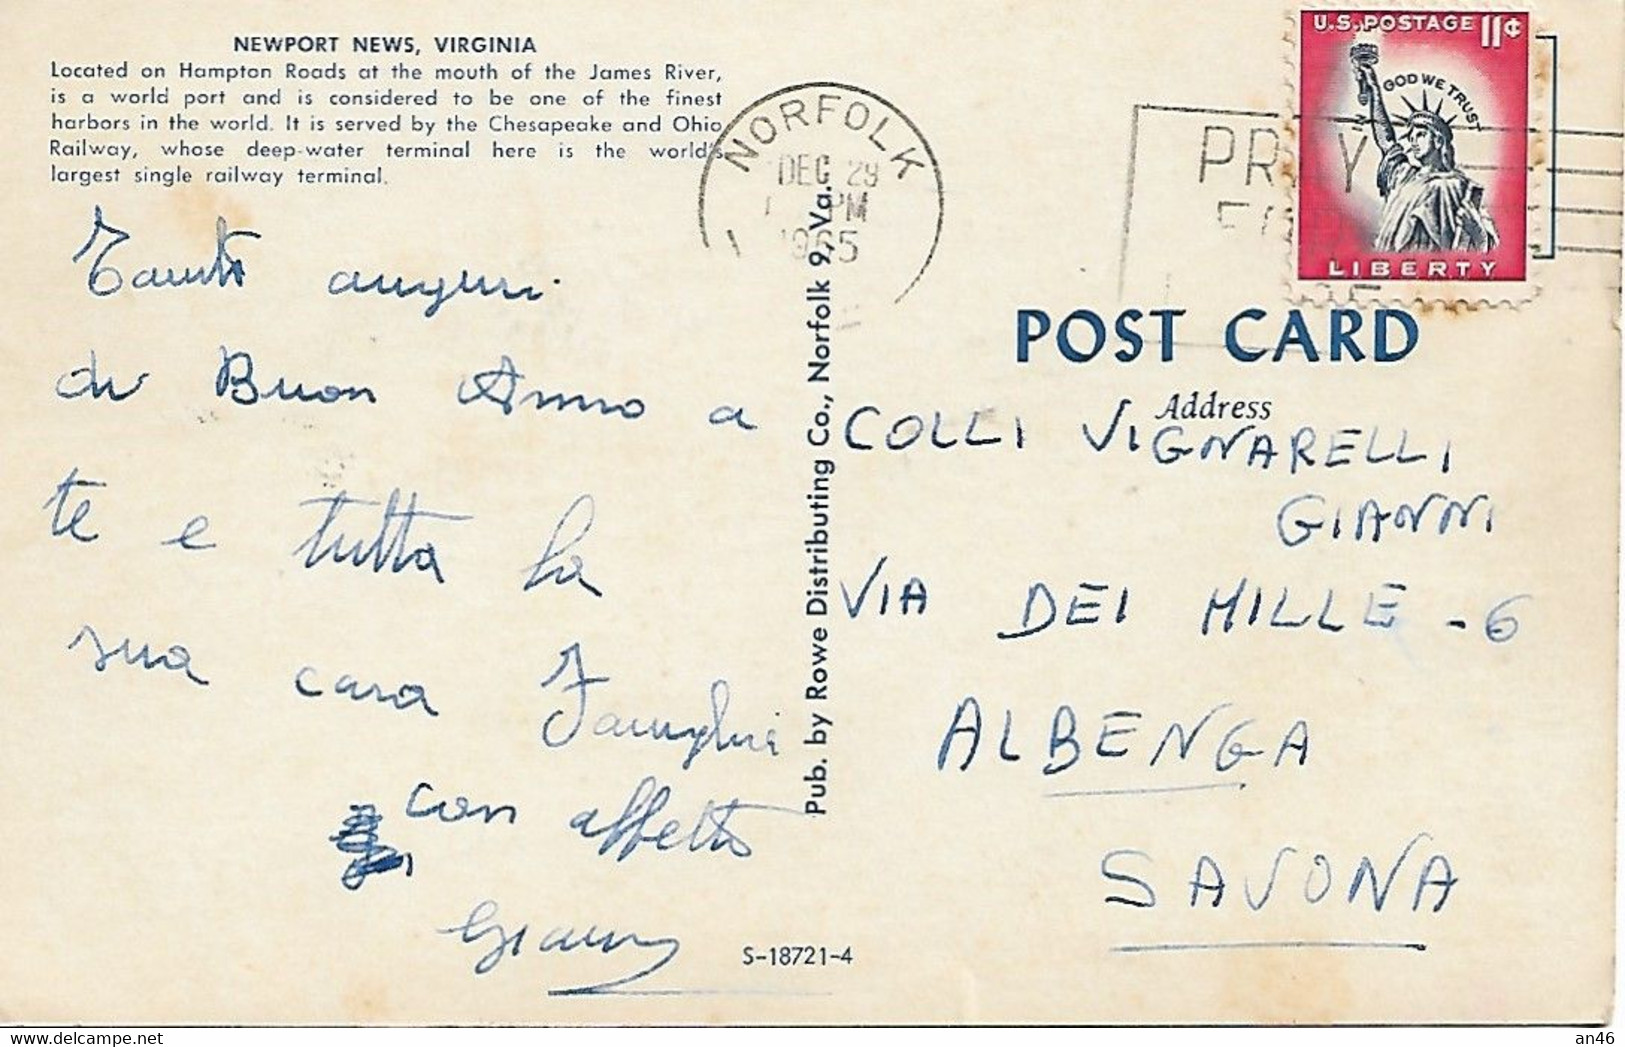 NEWPORT NEWS, VIRGINIA
Located on Hampton Roads at the mouth of the James River,
is a world port and is considered to be one of the finest
harbors in the world. It is served by the Chesapeake and Ohio
Railway, whose deep-water terminal here is the world's
largest single railway terminal.
Tanti auguri
di Buon Anno a
te e tutta la
sua cara Famiglia
con affetto
Gianni
S-18721-4
Pub. by Rowe Distributing Co., Norfolk 9, Va.
NORFOLK
DEC 29
PM
1965
PRAY
U.S. POSTAGE 11¢
IN GOD WE TRUST
LIBERTY
POST CARD
Address
COLLI VIGNARELLI
GIANNI
VIA DEI MILLE - 6
ALBENGA
SAVONA
an46